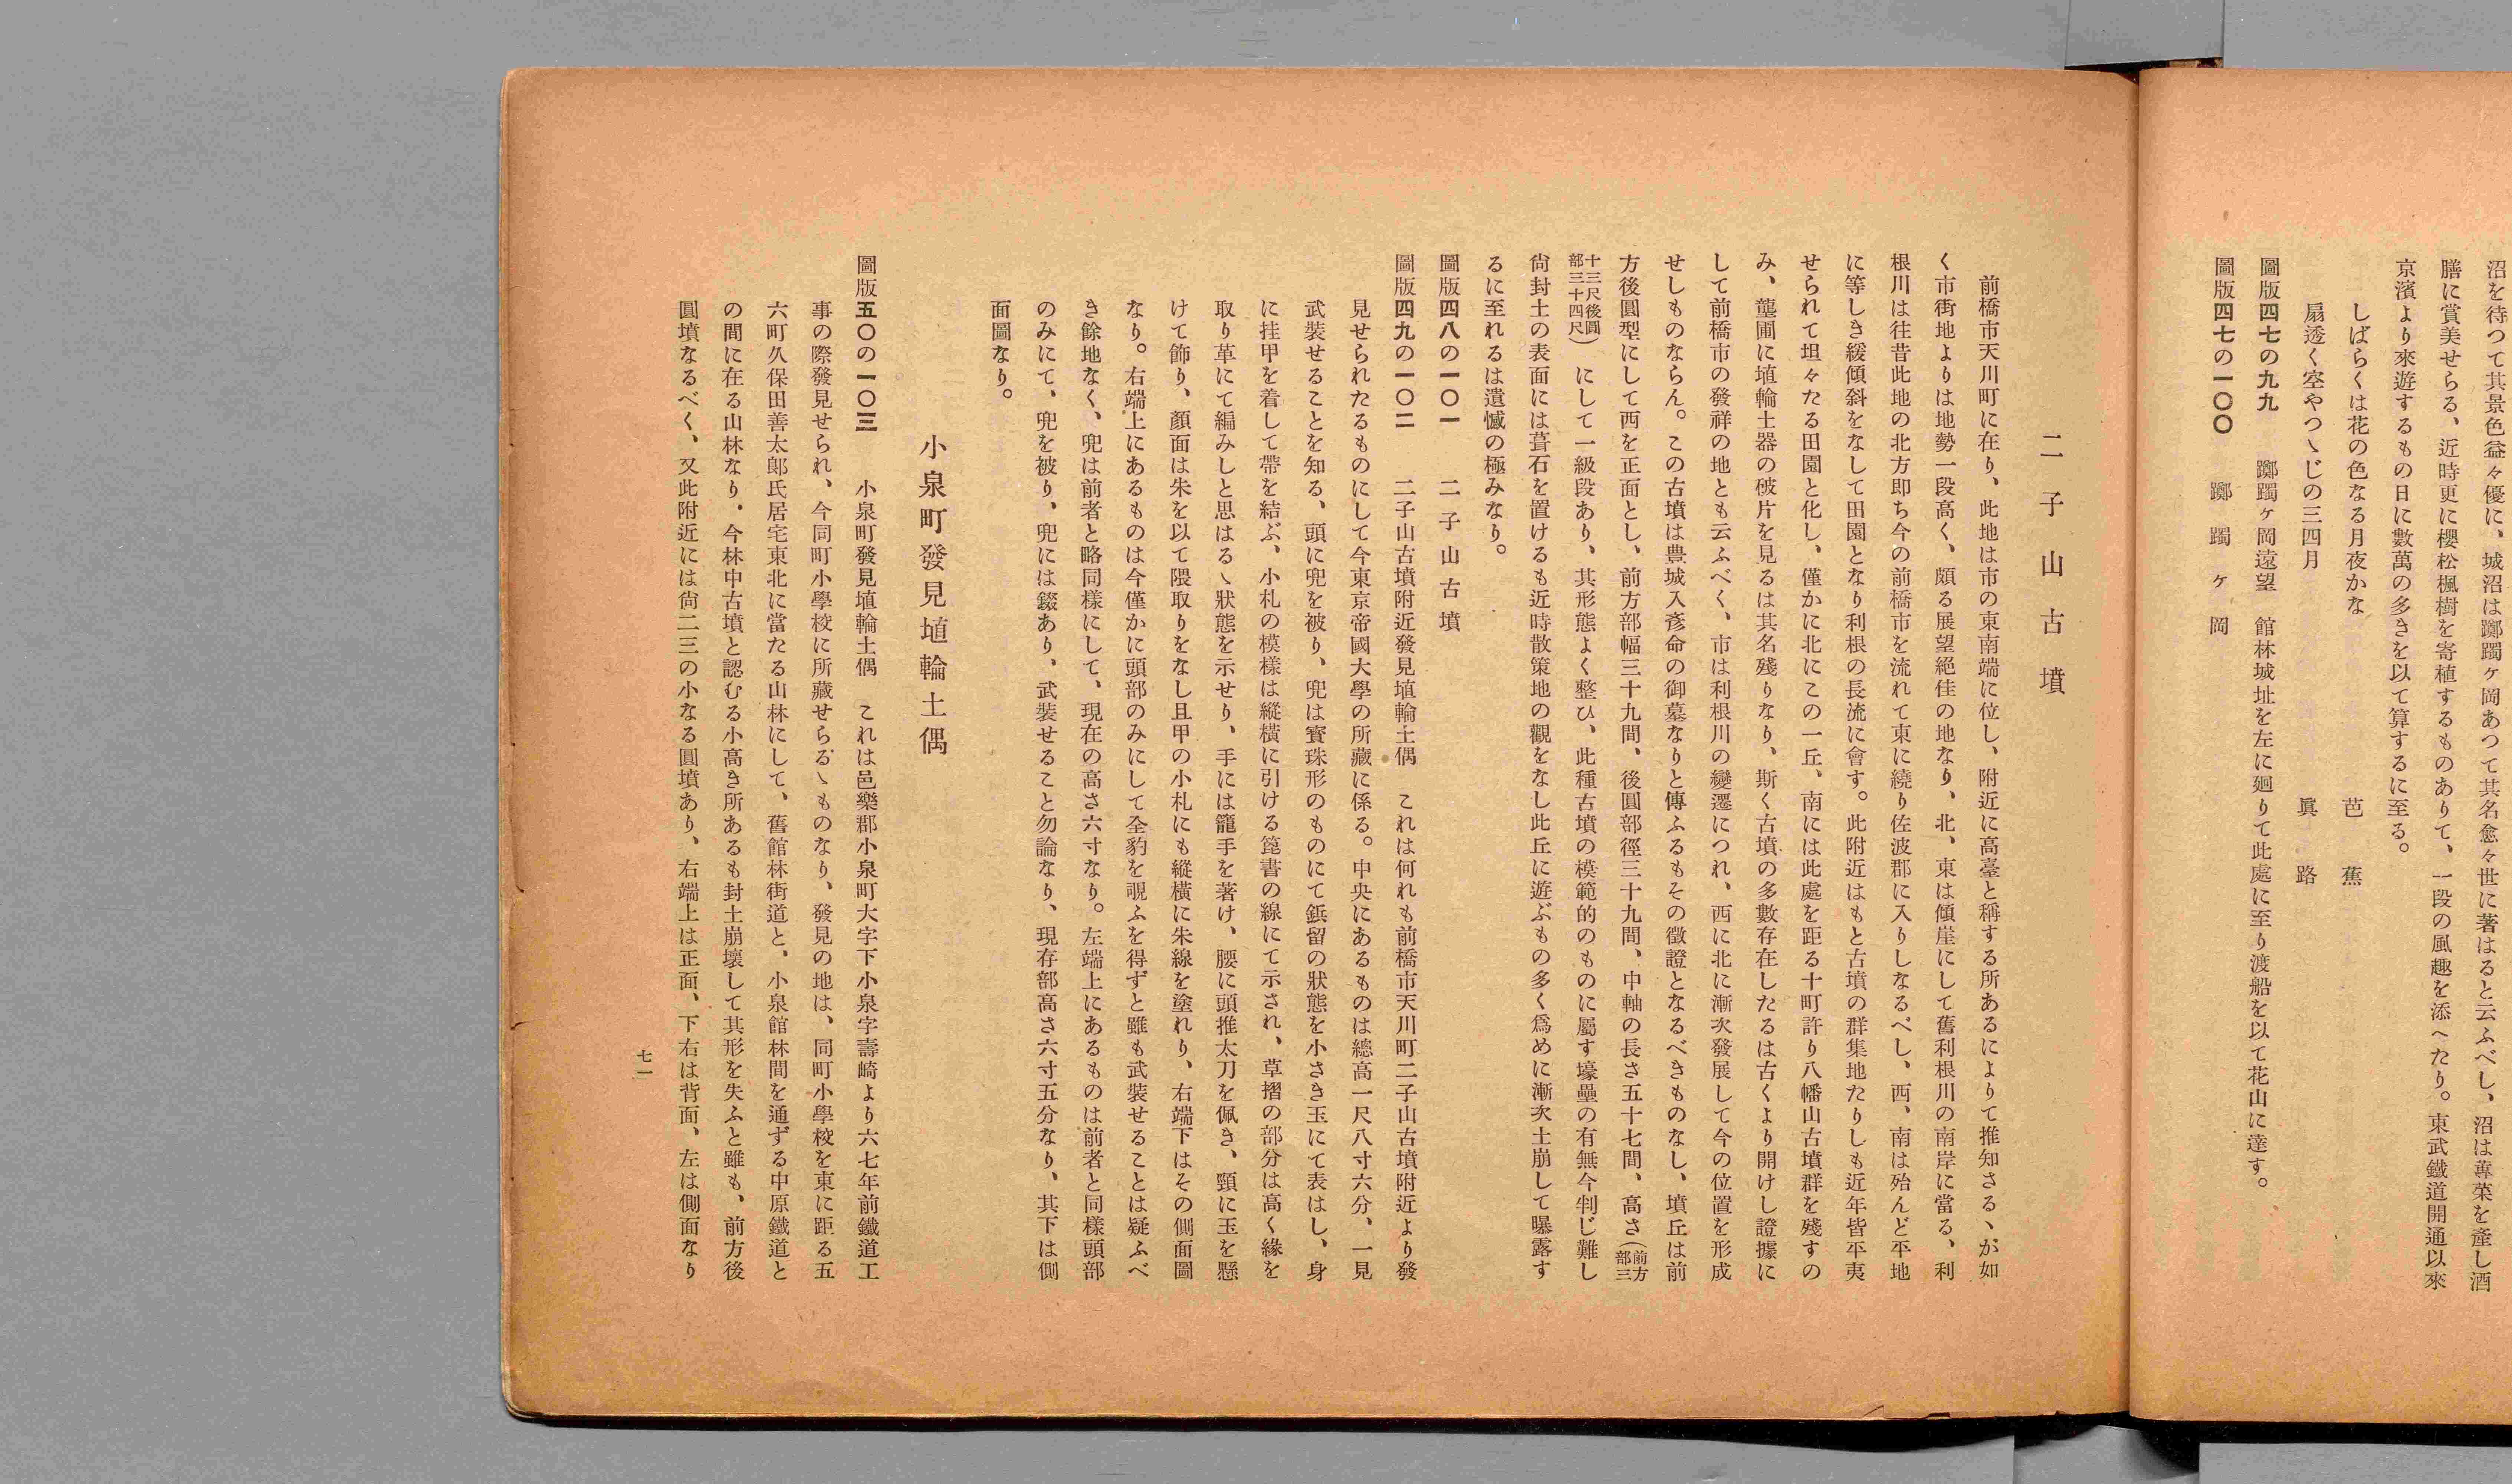 沼を待つて其景色益々優に、城沼は躑躅ヶ岡あつて其名愈々世に著はると云ふべし、沼は蓴菜を產し酒
膳に賞美せらる、近時更に櫻松楓樹を寄植するものありて、一段の風趣を添へたり。東武鐵道開通以來
京濱より來遊するもの日に數萬の多きを以て算するに至る。
しばらくは花の色なる月夜かな　芭蕉
扇透く空やつゝじの三四月　眞路
圖版四七の九九　躑躅ヶ岡遠望　館林城址を左に廻りて此處に至り渡船を以て花山に達す。
圖版四七の一〇〇　躑躅ヶ岡
二子山古墳
前橋市天川町に在り、此地は市の東南端に位し、附近に高臺と稱する所あるによりて推知さるゝが如
く市街地よりは地勢一段高く、頗る展望絕佳の地なり、北、東は傾崖にして舊利根川の南岸に當る、利
根川は往昔此地の北方即ち今の前橋市を流れて東に繞り佐波郡に入りしなるべし、西、南は殆んど平地
に等しき緩傾斜をなして田園となり利根の長流に會す。此附近はもと古墳の群集地たりしも近年皆平夷
せられて坦々たる田園と化し、僅かに北にこの一丘、南には此處を距る十町許り八幡山古墳群を殘すの
み、壟圃に埴輪土器の破片を見るは其名殘りなり、斯く古墳の多數存在したるは古くより開けし證據に
して前橋市の發祥の地とも云ふべく、市は利根川の變遷につれ、西に北に漸次發展して今の位置を形成
せしものならん。この古墳は豊城入彥命の御墓なりと傳ふるもその徵證となるべきものなし、墳丘は前
方後圓型にして西を正面とし、前方部幅三十九間、後圓部徑三十九間、中軸の長さ五十七間、高さ（前方部三
十三尺後圓部三十四尺）にして一級段あり、其形態よく整ひ、此種古墳の模範的のものに屬す壕壘の有無今判じ難し
尙封土の表面には葺石を置けるも近時散策地の觀をなし此丘に遊ぶもの多く爲めに漸次土崩して曝露す
るに至れるは遺憾の極みなり。
圖版四八の一〇一　二子山古墳
圖版四九の一〇二　二子山古墳附近發見埴輪土偶　これは何れも前橋市天川町二子山古墳附近より發
見せられたるものにして今東京帝國大學の所藏に係る。中央にあるものは總高一尺八寸六分、一見
武裝せることを知る、頭に兜を被り、兜は寳珠形のものにて鋲留の狀態を小さき玉にて表はし、身
に挂甲を着して帶を結ぶ、小札の模樣は縱橫に引ける箆書の線にて示され、草摺の部分は高く緣を
取り革にて編みしと思はるゝ狀態を示せり、手には籠手を著け、腰に頭推太刀を佩き、頸に玉を懸
けて飾り、顏面は朱を以て隈取りをなし且甲の小札にも縱橫に朱線を塗れり、右端下はその側面圖
なり。右端上にあるものは今僅かに頭部のみにして全豹を覗ふを得ずと雖も武裝せることは疑ふべ
き餘地なく、兜は前者と略同樣にして、現在の高さ六寸なり。左端上にあるものは前者と同樣頭部
のみにて、兜を被り、兜には錣あり、武裝せること勿論なり、現存部高さ六寸五分なり、其下は側
面圖なり。
小泉町發見埴輪土偶
圖版五〇の一〇三　小泉町發見埴輪土偶　これは邑樂郡小泉町大字下小泉字壽崎より六七年前鐵道工
事の際發見せられ、今同町小學校に所藏せらるゝものなり、發見の地は、同町小學校を東に距る五
六町久保田善太郎氏居宅東北に當たる山林にして、舊館林街道と、小泉館林間を通ずる中原鐵道と
の間に在る山林なり。今林中古墳と認むる小高き所あるも封土崩壞して其形を失ふと雖も、前方後
圓墳なるべく、又此附近には尙二三の小なる圓墳あり、右端上は正面、下右は背面、左は側面なり
七一